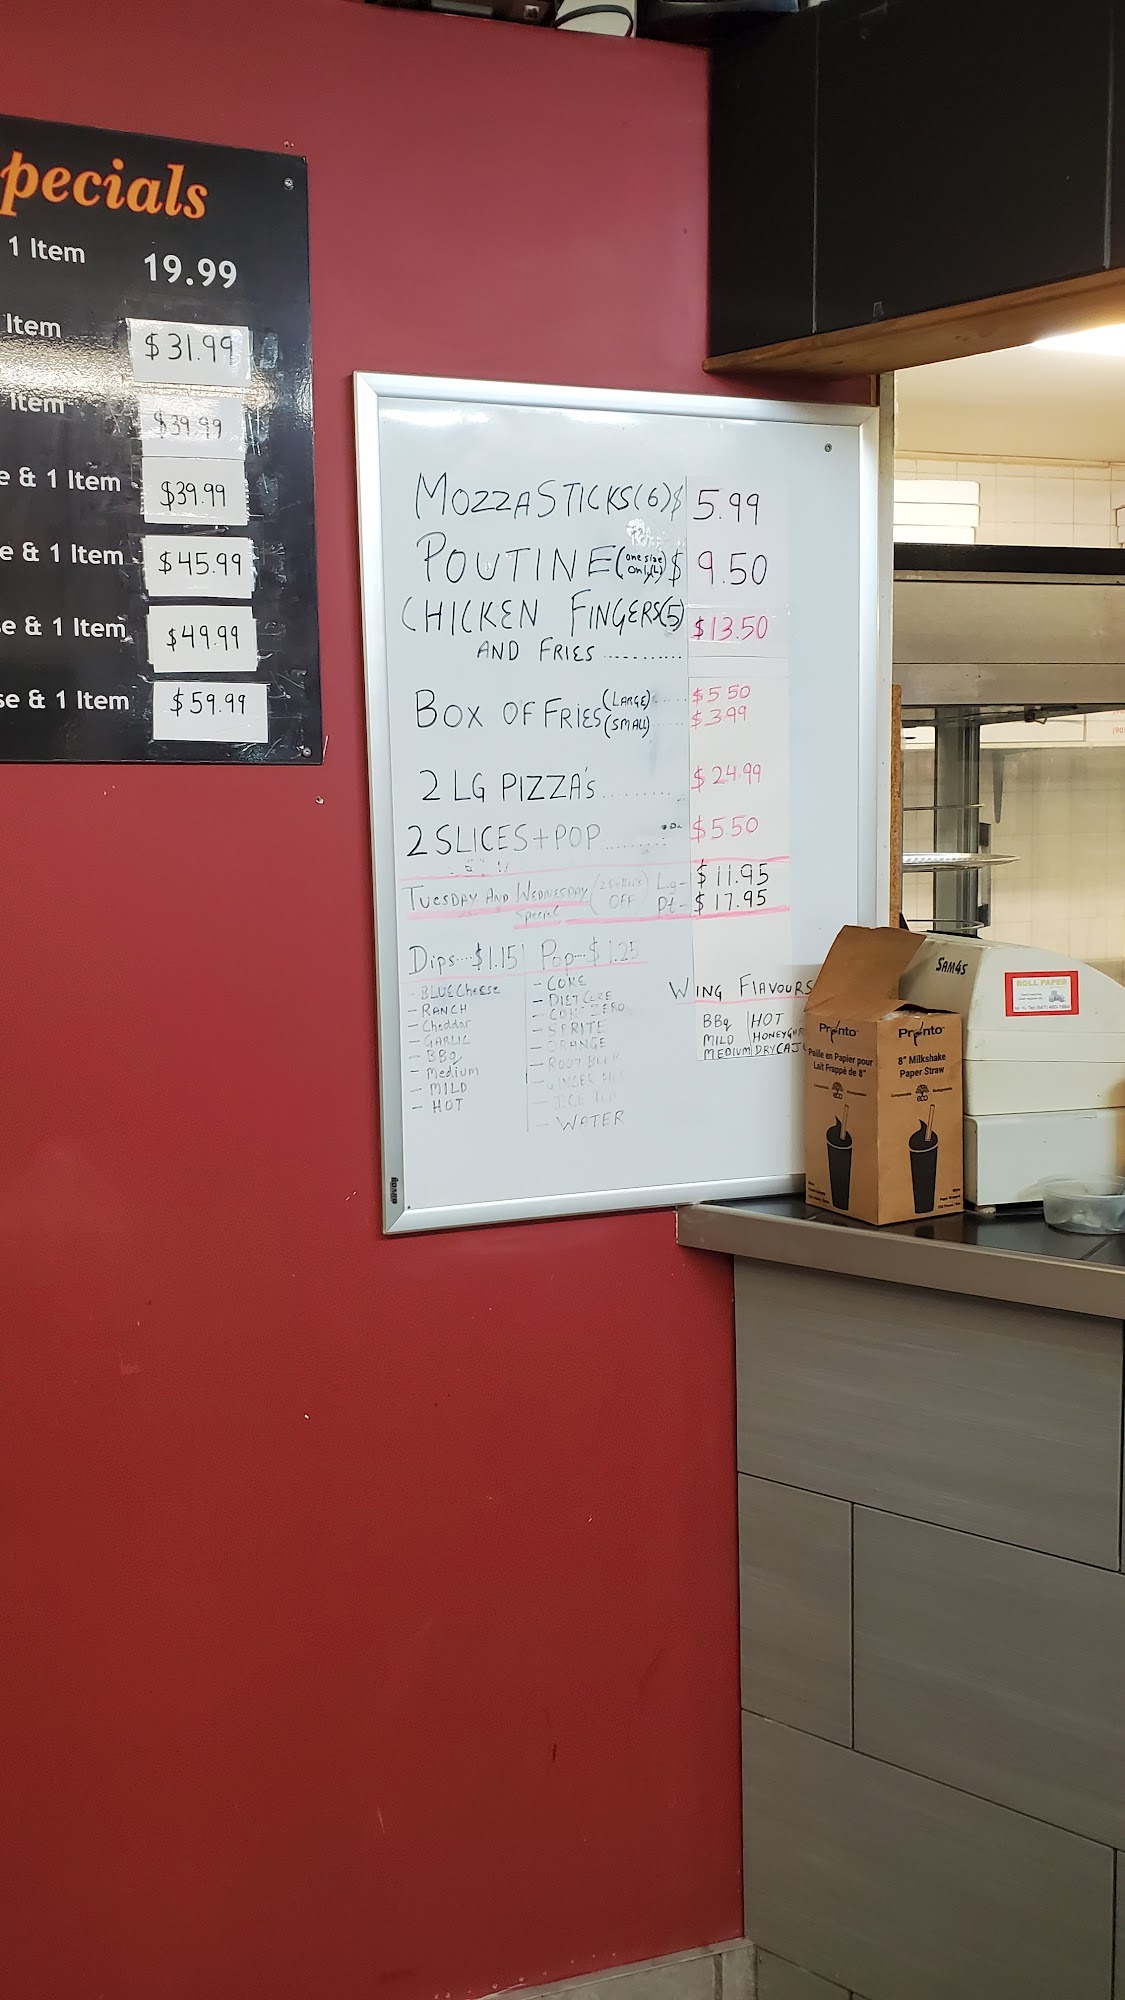 pecials
1 Item 19.99
Item $31.99
Item $39.99
e & 1 Item $39.99
e & 1 Item $45.99
se & 1 Item $49.99
se & 1 Item $59.99
MOZZA STICKS(6) $ 5.99
POUTINE (one size only(L)) $ 9.50
CHICKEN FINGERS(5) $13.50
AND FRIES ..........
BOX OF FRIES (LARGE) ..... $5.50
(SMALL) ..... $3.99
2 LG PIZZA'S ......... $24.99
2 SLICES + POP ........ $5.50
TUESDAY AND WEDNESDAY (2 Dollars OFF) Lg- $11.95
Special Pt- $17.95
Dips....$1.15
- BLUE Cheese
- RANCH
- Cheddar
- GARLIC
- BBq
- Medium
- MILD
- HOT
Pop...$1.25
- COKE
- DIET COKE
- COKE ZERO
- SPRITE
- ORANGE
- ROOT BEER
- GINGER
- ICE TEA
- WATER
WING FlAVOURS
BBq HOT
MILD HONEYGAR
MEDIUM DRY CAJ
SAM4S
ROLL PAPER
Pronto
Paille en Papier pour
Lait Frappé de 8"
eco
Pronto
8" Milkshake
Paper Straw
eco